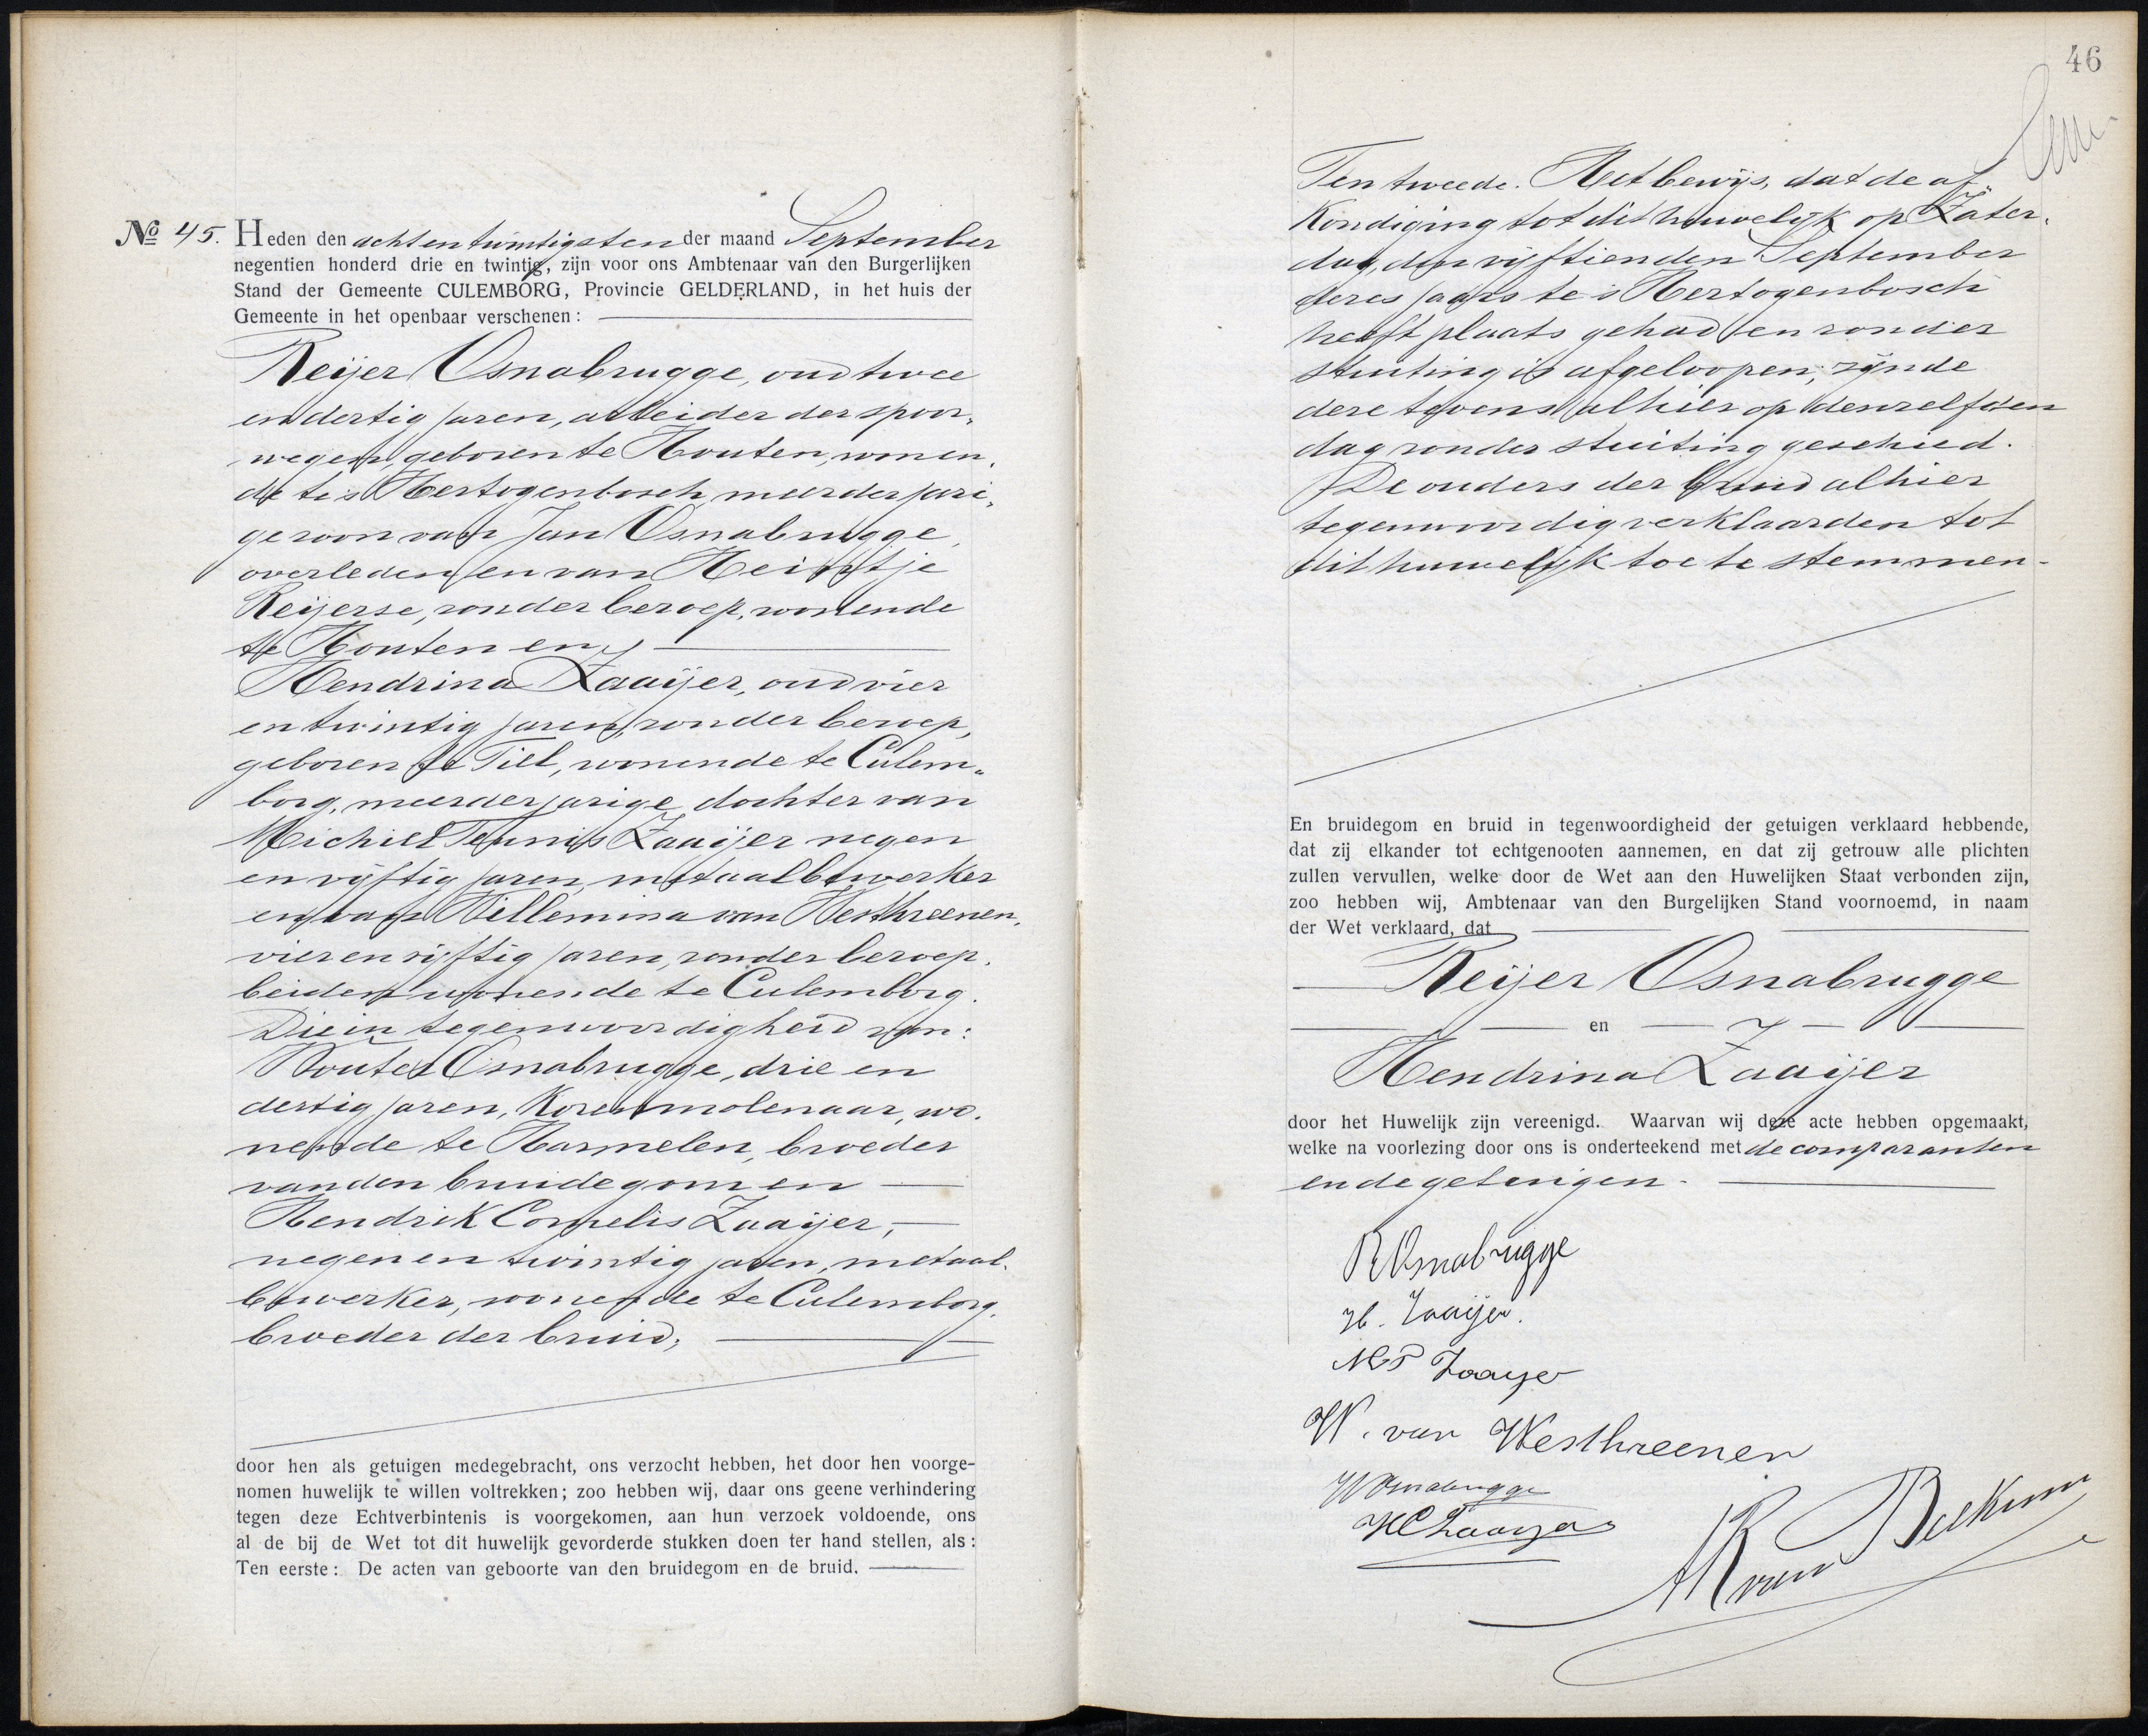 № 45. Heden den acht en twintigsten der maand September
negentien honderd drie en twintig, zijn voor ons Ambtenaar van den Burgerlijken
Stand der Gemeente CULEMBORG, Provincie GELDERLAND, in het huis der
Gemeente in het openbaar verschenen:
Reijer Osnabrugge, oud twee
en dertig jaren, arbeider der spoor-
wegen, geboren te Houten, wonen-
de te 's Hertogenbosch, meerderjari-
ge zoon van Jan Osnabrugge,
overleden, en van Heintje
Reijerse, zonder beroep, wonende
te Houten en
Hendrina Zaaijer, oud vier
en twintig jaren, zonder beroep,
geboren te Tiel, wonende te Culem-
borg, meerderjarige dochter van
Michiel Teunis Zaaijer negen
en vijftig jaren, metaalbewerker
en van Willemina van Westhreenen,
vier en vijftig jaren, zonder beroep,
beiden wonende te Culemborg.
Die in tegenwoordigheid van:
Wouter Osnabrugge, drie en
dertig jaren, Korenmolenaar, wo-
nende te Harmelen, broeder
van den bruidegom en
Hendrik Cornelis Zaaijer,
negen en twintig jaren, metaal-
bewerker, wonende te Culemborg,
broeder der bruid,
door hen als getuigen medegebracht, ons verzocht hebben, het door hen voorge-
nomen huwelijk te willen voltrekken; zoo hebben wij, daar ons geene verhindering
tegen deze Echtverbintenis is voorgekomen, aan hun verzoek voldoende, ons
al de bij de Wet tot dit huwelijk gevorderde stukken doen ter hand stellen, als:
Ten eerste: De acten van geboorte van den bruidegom en de bruid.
46
Ten tweede. Het bewijs, dat de af-
kondiging tot dit huwelijk op Zater-
dag, den vijftienden September
dezes jaars te 's Hertogenbosch
heeft plaats gehad en zonder
stuiting is afgeloopen; zijnde
deze tevens alhier op denzelfden
dag zonder stuiting geschied.
De ouders der bruid alhier
tegenwoordig verklaarden tot
dit huwelijk toe te stemmen.
En bruidegom en bruid in tegenwoordigheid der getuigen verklaard hebbende,
dat zij elkander tot echtgenooten aannemen, en dat zij getrouw alle plichten
zullen vervullen, welke door de Wet aan den Huwelijken Staat verbonden zijn,
zoo hebben wij, Ambtenaar van den Burgelijken Stand voornoemd, in naam
der Wet verklaard, dat
Reijer Osnabrugge
en
Hendrina Zaaijer
door het Huwelijk zijn vereenigd. Waarvan wij deze acte hebben opgemaakt,
welke na voorlezing door ons is onderteekend met de comparanten
en de getuigen.
R Osnabrugge
H. Zaaijer.
M T Zaaijer
W. van Westhreenen
W Osnabrugge
H C Zaaijer